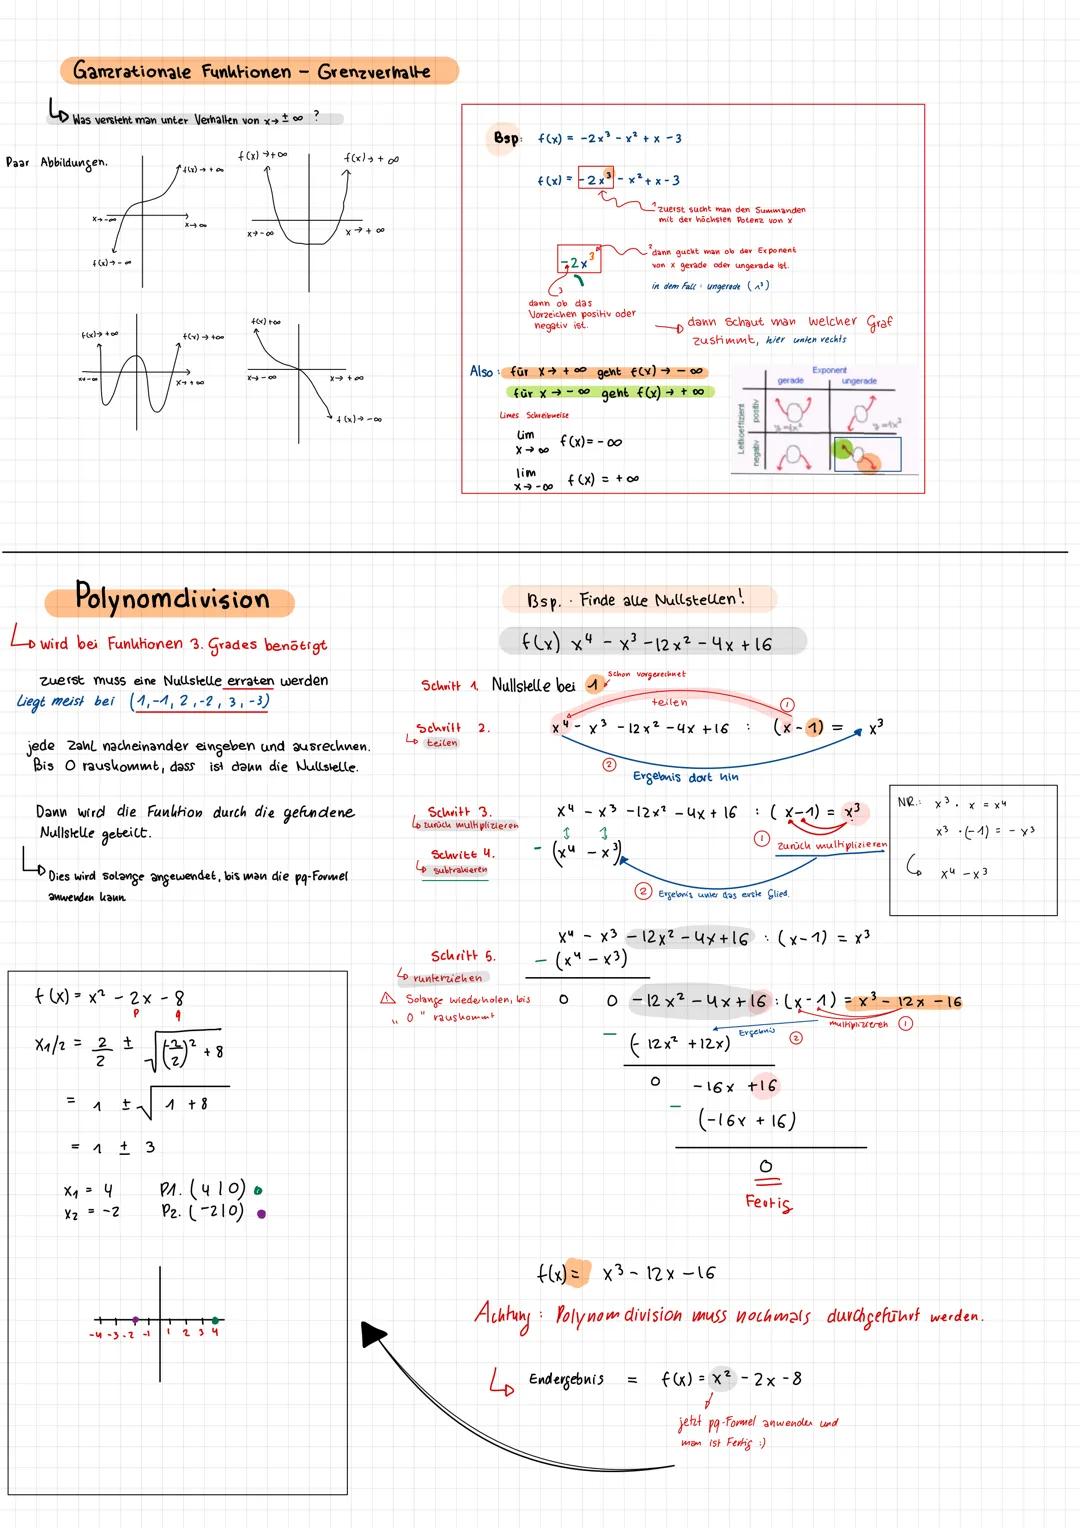 Ganzrationale Funktionen - Grenzverhalte
Was versteht man unter Verhalten von x→ ± ∞ ?
Paar Abbildungen.
f(x) → + ∞
x→-∞
x→∞
f(x)→-∞
f(x) →+∞
f(x)→ + ∞
x→-∞
x→ + ∞
f(x)→ +∞
f(x) → +∞
x→-∞
x→ + ∞
f(x) +∞
x→-∞
x→ +∞
f(x)→-∞
Bsp: f(x) = -2x³ - x² + x - 3
f(x) = -2x³ - x² + x - 3
1 zuerst sucht man den Summanden
mit der höchsten Potenz von x
-2x³
2 dann guckt man ob der Exponent
von x gerade oder ungerade ist.
in dem Fall: ungerade (^3)
3
dann ob das
Vorzeichen positiv oder
negativ ist.
dann schaut man welcher Graf
zustimmt, hier unten rechts
Also: für x→ +∞ geht f(x) → - ∞
für x → - ∞ geht f(x) → + ∞
Limes Schreibweise
Lim f(x) = - ∞
x→ ∞
lim f(x) = + ∞
x→ -∞
Exponent
gerade ungerade
Leitkoeffizient
positiv
negativ
Polynomdivision
wird bei Funktionen 3. Grades benötigt
zuerst muss eine Nullstelle erraten werden
Liegt meist bei (1,-1, 2,-2, 3,-3)
jede Zahl nacheinander eingeben und ausrechnen.
Bis 0 rauskommt, dass ist dann die Nullstelle.
Dann wird die Funktion durch die gefundene
Nullstelle geteilt.
Dies wird solange angewendet, bis man die pq-Formel
anwenden kann
f(x) = x² - 2x - 8
p q
x1/2 = 2/2 ± √((-2/2)² + 8)
= 1 ± √(1 + 8)
= 1 ± 3
x₁ = 4 P1. (4|0)
x₂ = -2 P2. (-2|0)
-4 -3 -2 -1 1 2 3 4
Bsp. : Finde alle Nullstellen!
f(x) x⁴ - x³ - 12x² - 4x + 16
Schritt 1. Nullstelle bei 1 schon vorgerechnet
teilen
1
Schritt 2. x⁴ - x³ - 12x² - 4x + 16 : (x - 1) = x³
teilen
2
Ergebnis dort hin
Schritt 3. x⁴ - x³ - 12x² - 4x + 16 : (x - 1) = x³
zurück multiplizieren
1 zurück multiplizieren
Schritt 4. - (x⁴ - x³)
subtrahieren
2 Ergebnis unter das erste Glied.
NR.: x³ · x = x⁴
x³ · (-1) = - x³
x⁴ - x³
x⁴ - x³ - 12x² - 4x + 16 : (x - 1) = x³
Schritt 5. - (x⁴ - x³)
runterziehen
Solange wiederholen, bis
"0" rauskommt
0 0 - 12x² - 4x + 16 : (x - 1) = x³ - 12x - 16
multiplizieren 1
Ergebnis 2
- (- 12x² + 12x)
0 -16x + 16
- (-16x + 16)
0
Fertig
f(x) = x³ - 12x - 16
Achtung : Polynomdivision muss nochmals durchgeführt werden.
Endergebnis = f(x) = x² - 2x - 8
jetzt pq-Formel anwenden und
man ist Fertig :)